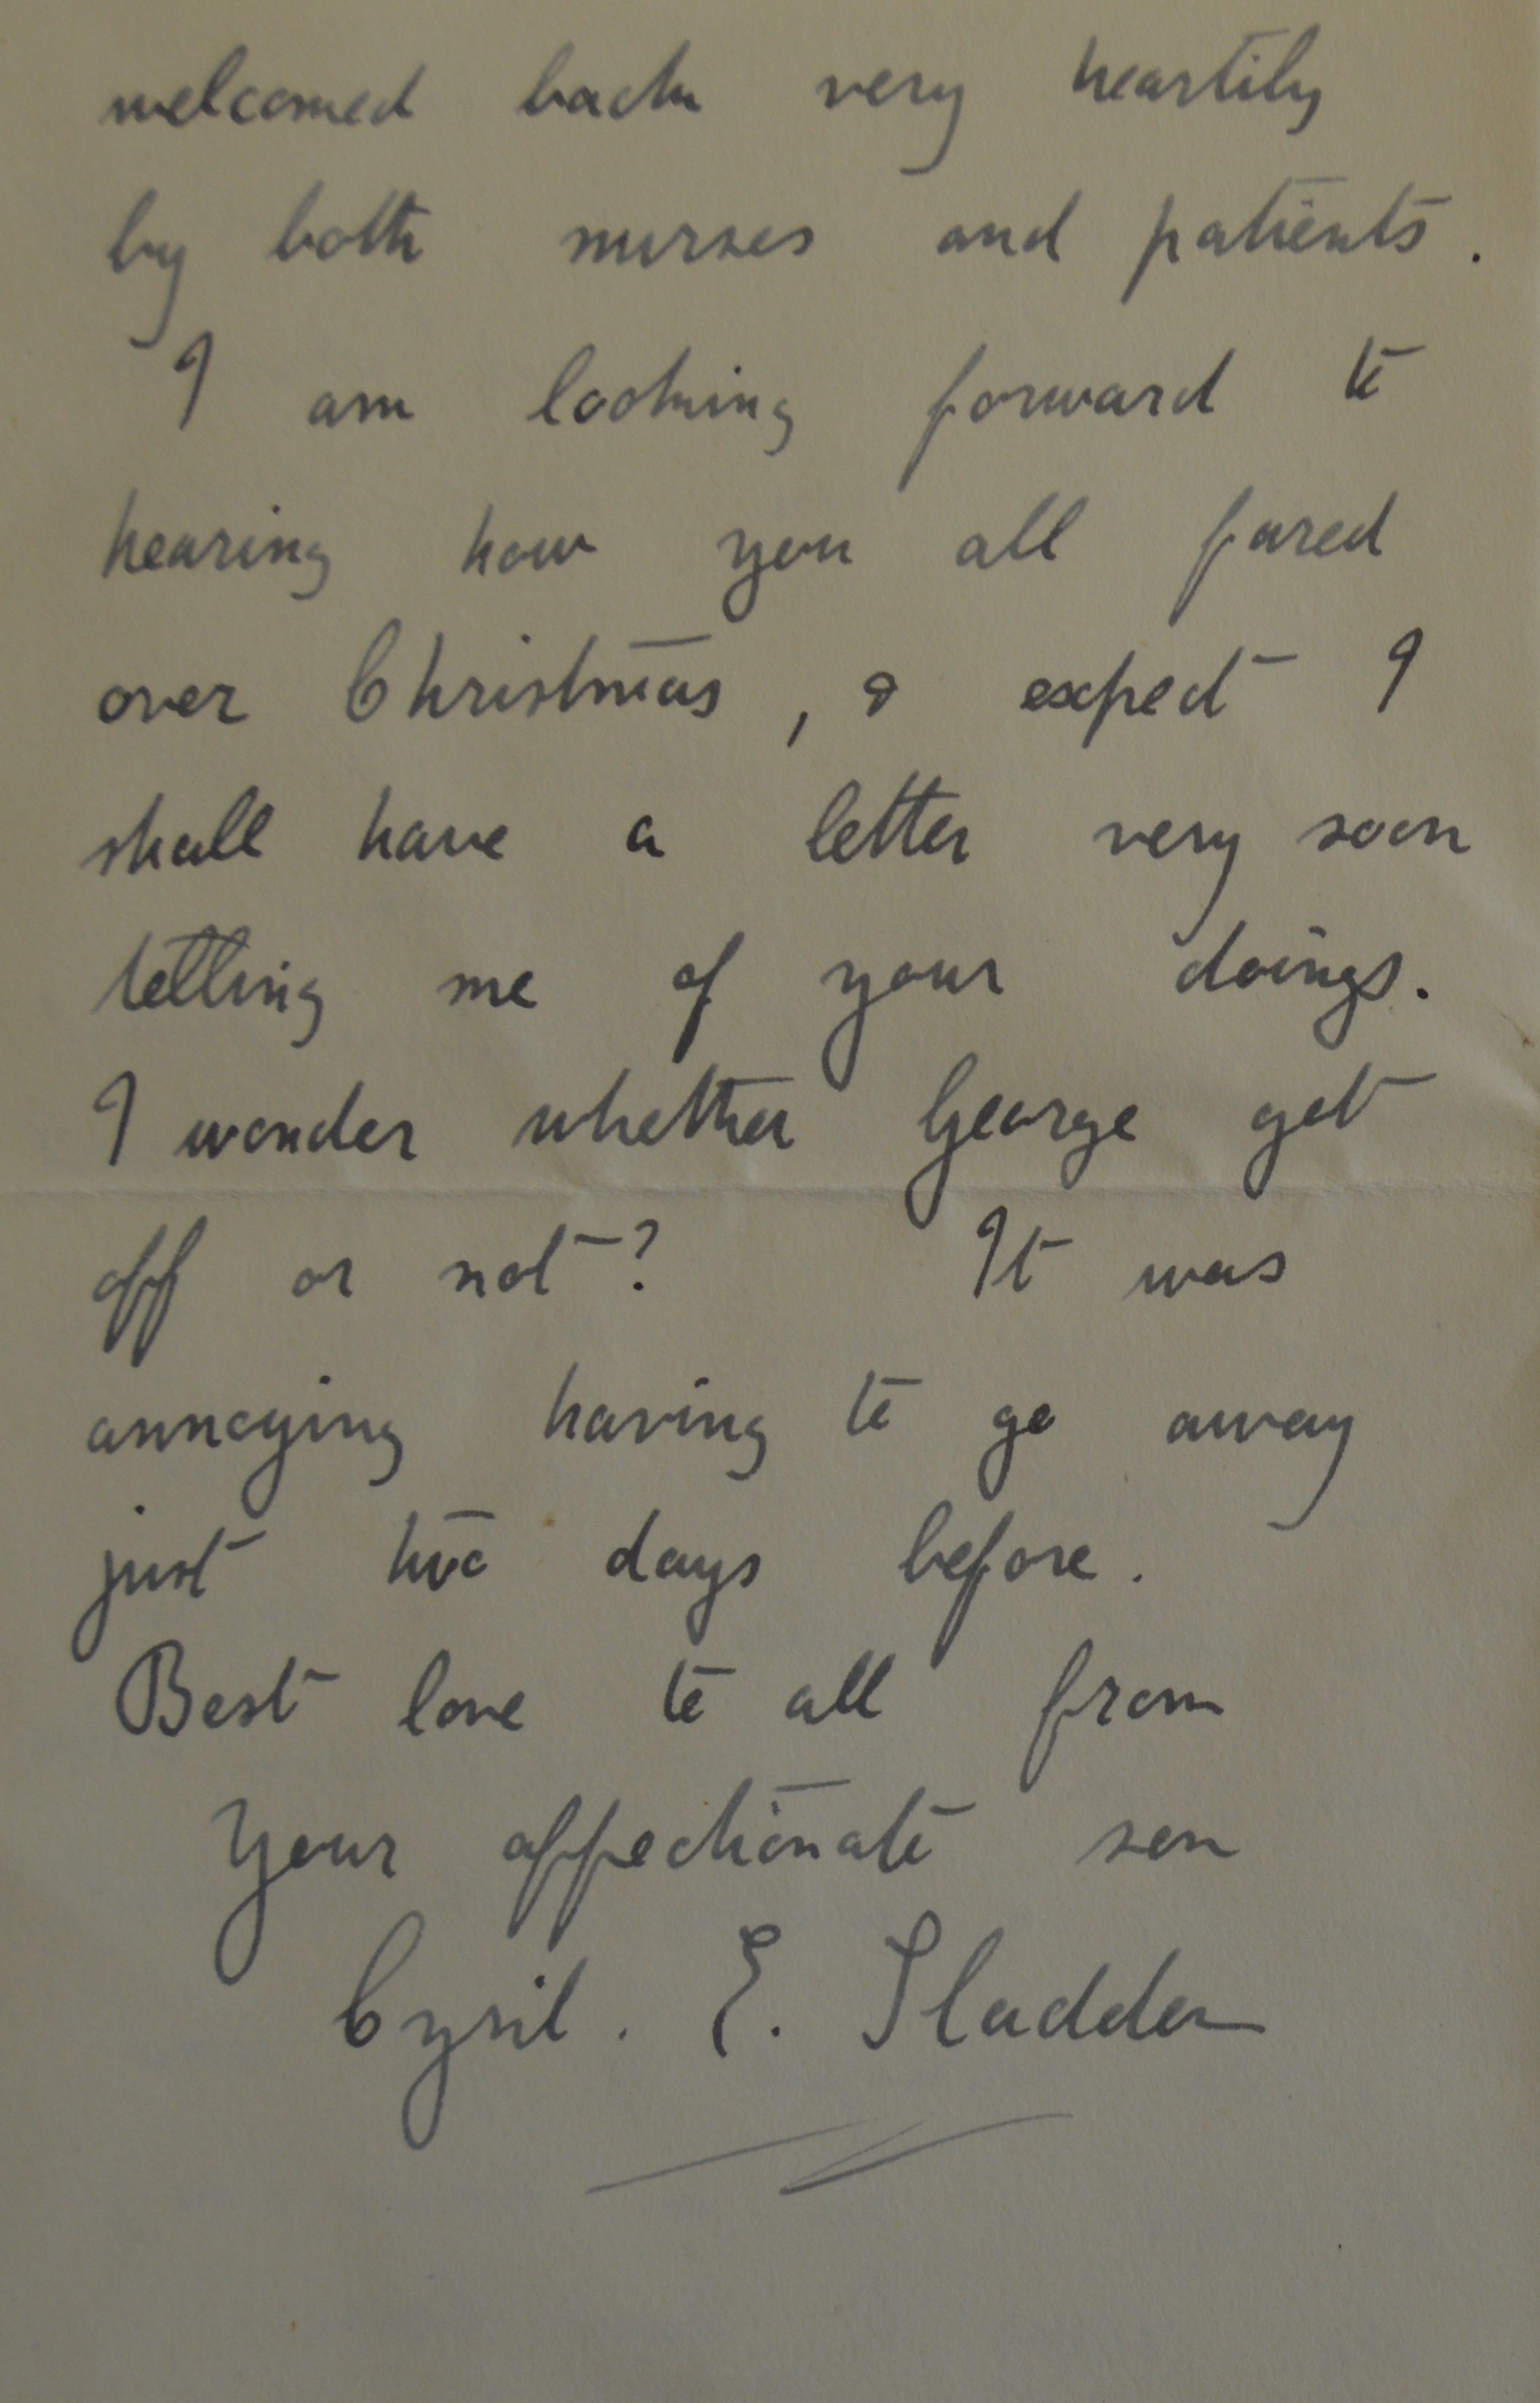 welcomed back very heartily
by both nurses and patients.
I am looking forward to
hearing how you all fared
over Christmas, & expect I
shall have a letter very soon
telling me of your doings.
I wonder whether George got
off or not? It was
annoying having to go away
just two days before.
Best love to all from
Your affectionate son
Cyril. E. Sladden